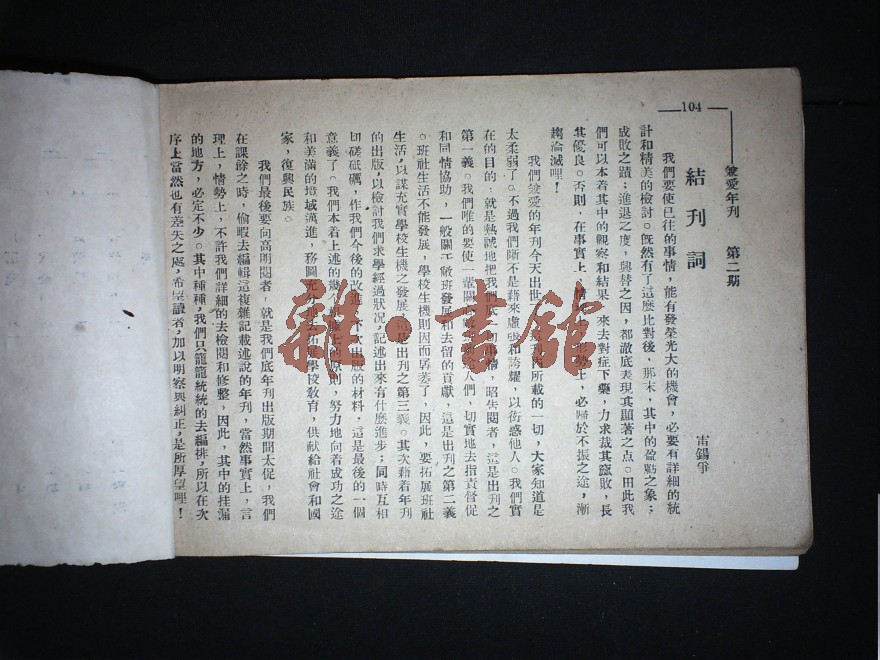 104
愛年刊　第二期
結刊詞
我們要使已往的事情，能有發榮光大的機會，必要有詳細的統
計和精美的檢討。既然有了這麼比對後，那末，其中的盈虧之象；
成敗之蹟；進退之度，興替之因，都澈底表現其顯著之点。由此我
們可以本着其中的觀察和結果，來去對症下藥，力求裁其窳敗，長
其優良。否則，在事實上，情勢上，必歸於不振之途，漸
趨淪滅哩！
我們愛的年刊今天出世內所載的一切，大家知道是
太柔弱了。不過我們斷不是藉來虛張和誇耀，以衒惑他人。我們實
在的目的，就是熱誠地把我們底一切，昭告閱者，這是出刊之
第一義。我們唯的要使一輩關人們，切實地去指責督促
和同情協助，一般關于敝班發展和去留的貢獻，這是出刊之第二義
。班社生活不能發展，學校生機則因而孱萎了，因此，要拓展班社
生活，以謀充實學校生機之發展，是出刊之第三義。其次藉着年刊
的出版，以檢討我們求學經過狀況，記述出來有什麼進步；同時互相
切磋砥礪，作我們今後的改進出版的材料，這是最後的一個
意義了。我們本着上述的幾個原則，努力地向着成功之途
和美滿的境域邁進，務圖充分地去拓展學校敎育，供献給社會和國
家，復興民族。
我們最後要向高明閱者，就是我們底年刊出版期間太促，我們
在課餘之時，偷暇去編輯這複雜記載述說的年刊，當然事實上，言
理上，情勢上，不許我們詳細的去檢閱和修整，因此，其中的挂漏
的地方，必定不少。其中種種，我們只籠籠統統的去編排，所以在次
序上當然也有差失之處，希望讀者，加以明察與糾正，是所厚望哩！
雜·書館